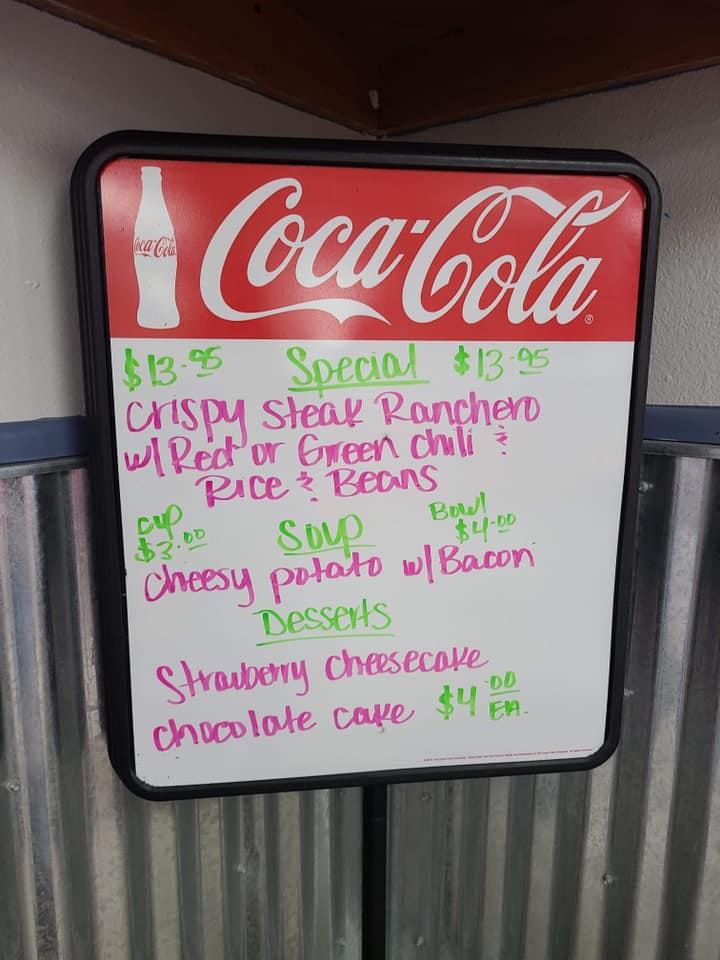 Coca-Cola
Coca-Cola®
$13.95 Special $13.95
Crispy Steak Ranchero
w/ Red or Green chili &
Rice & Beans
cup Bowl
$3.00 Soup $4.00
Cheesy potato w/ Bacon
Desserts
Strawberry Cheesecake
chocolate cake $4.00 EA.